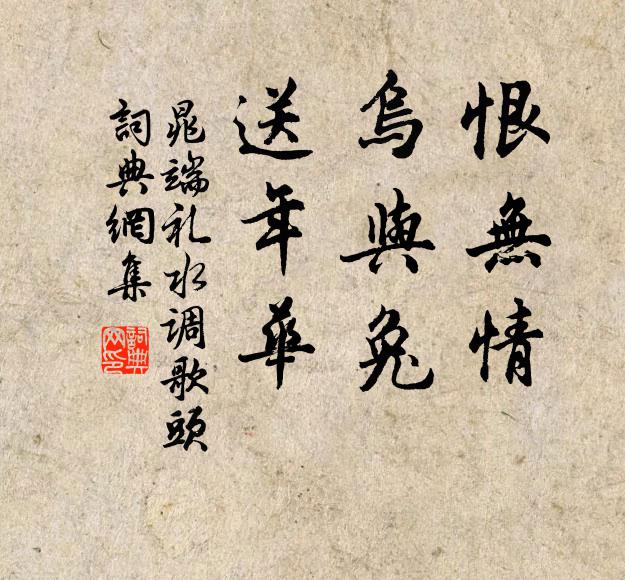 恨無情
烏與兔
送年華
晁端礼水调歌頭
詞典網集
詞典网印